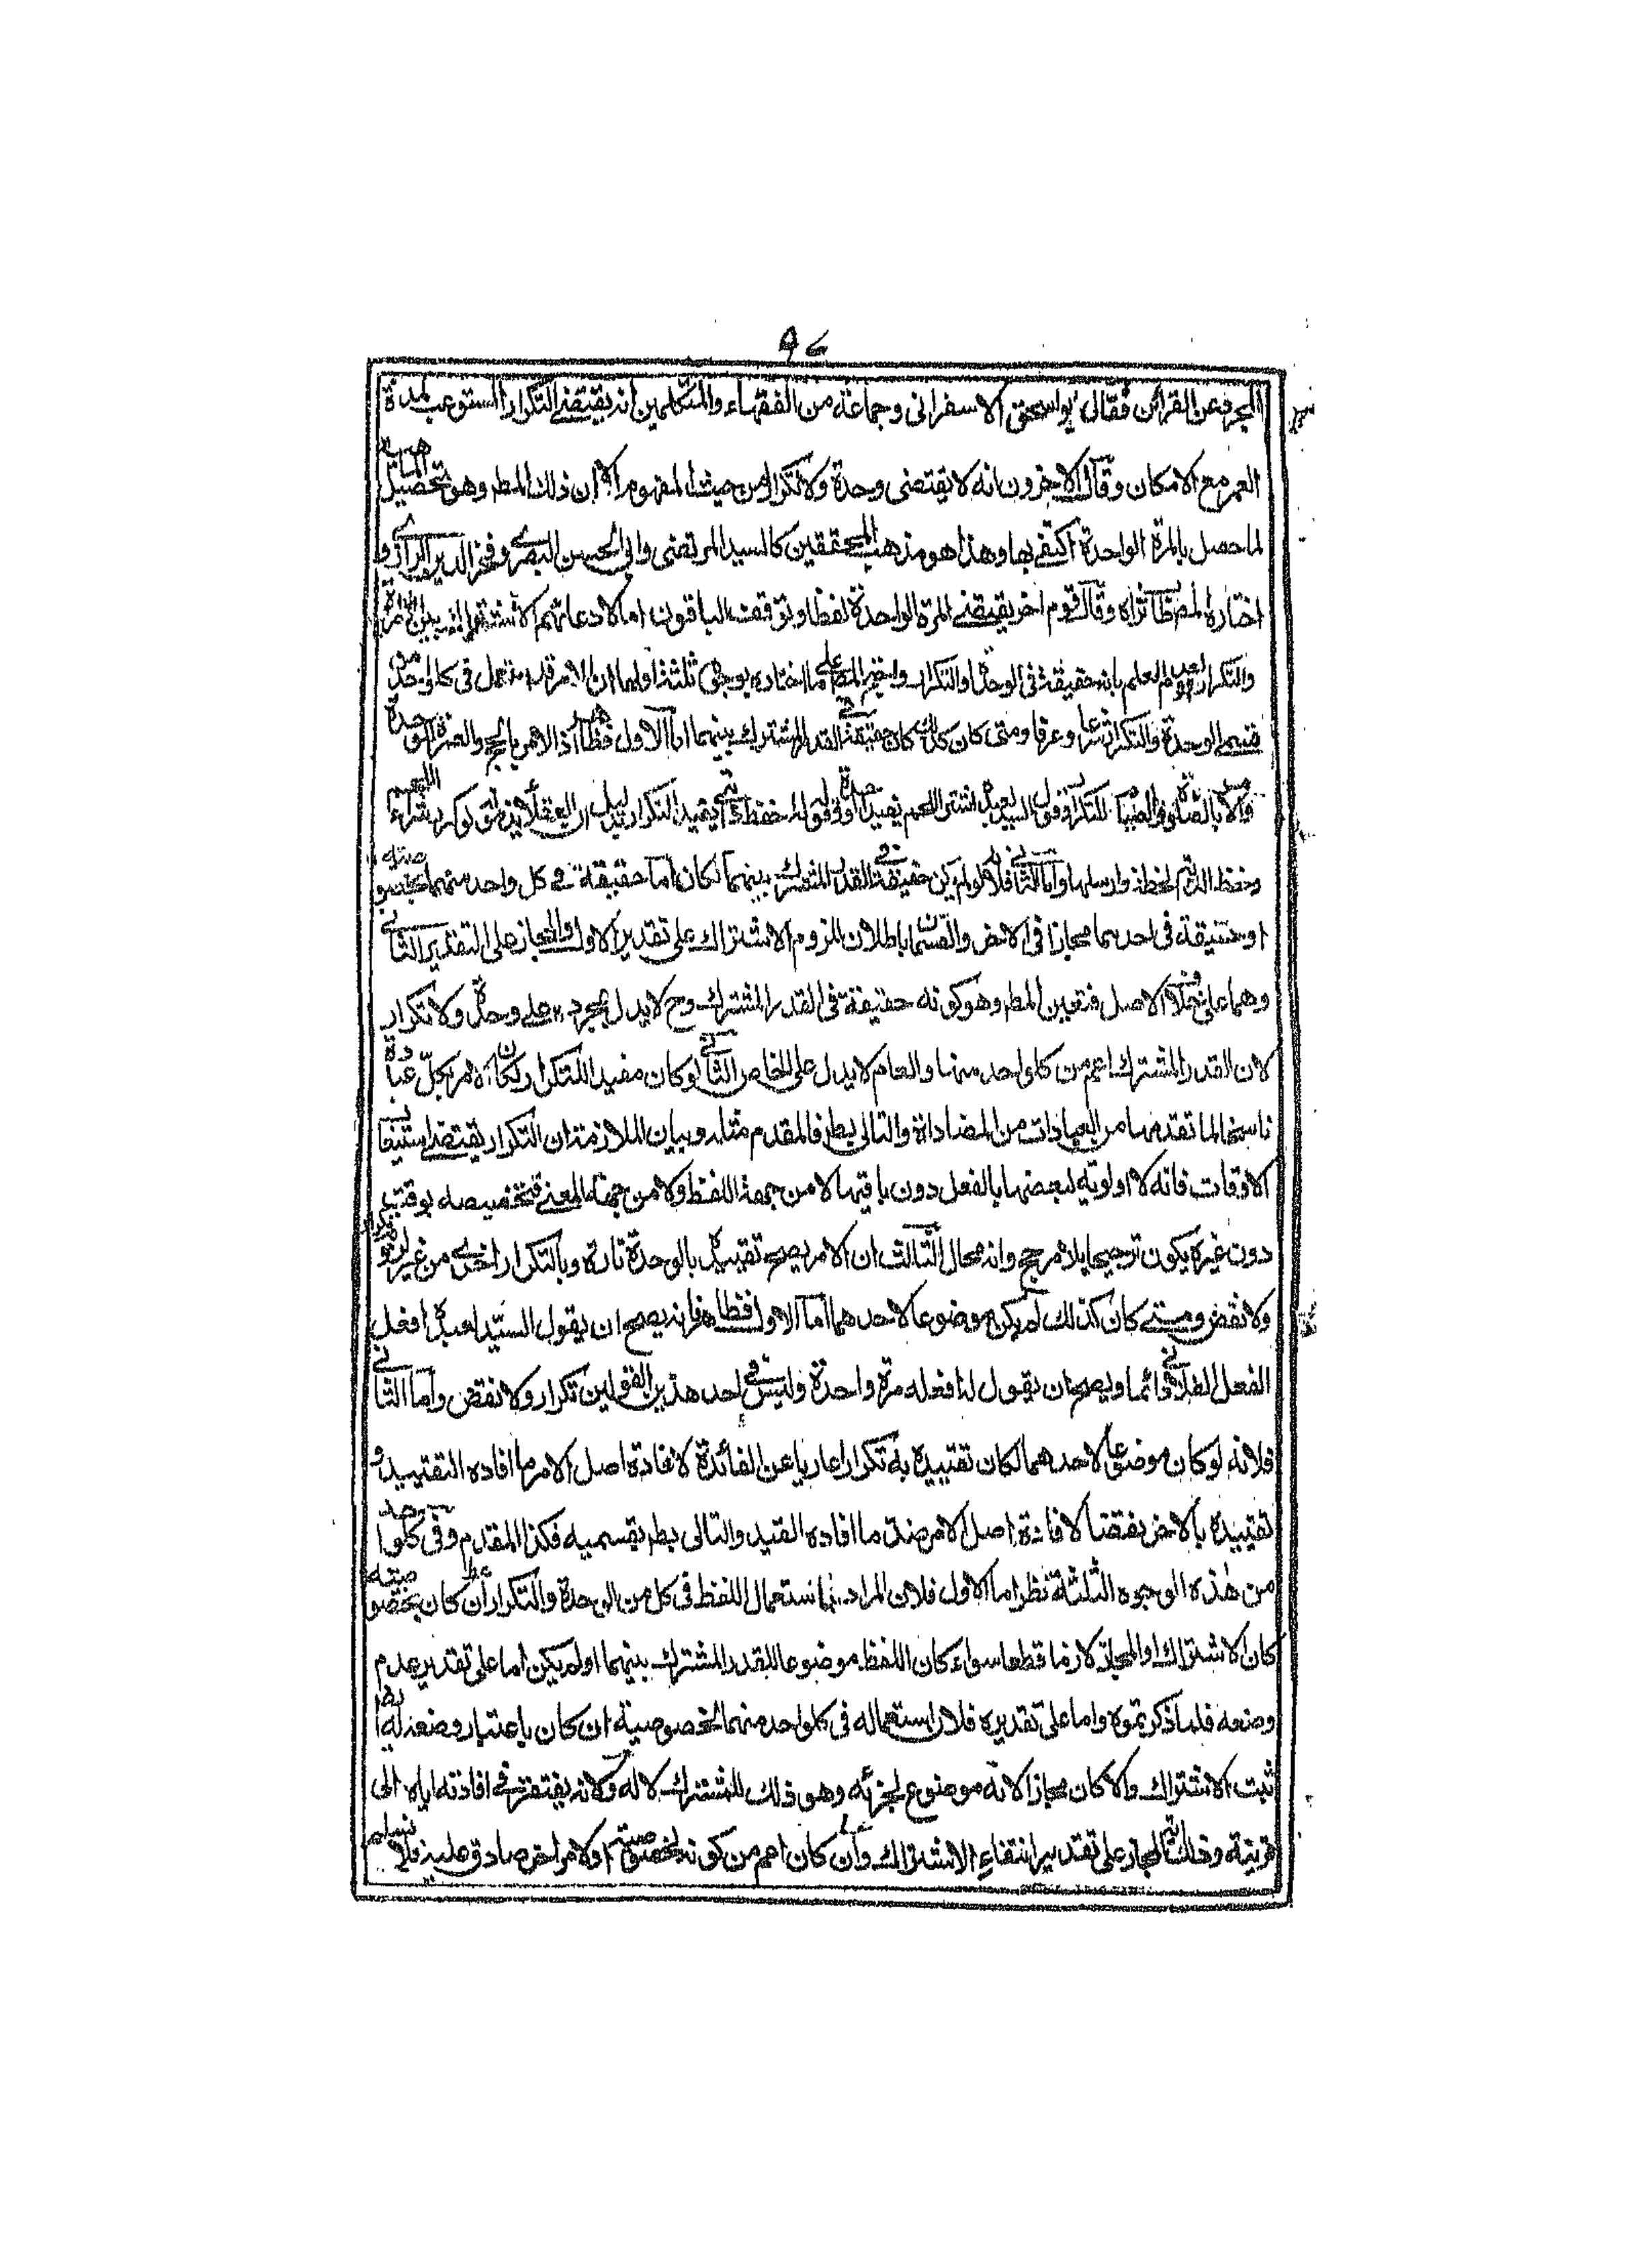 ٩٧
المجرد عن القرائن فقال ابواسحق الاسفرانى وجماعة من الفقهاء والمتكلمين انه يقتضى التكرار المستوعب لمدة
العمر مع الامكان وقال الاخرون انه لا يقتضى وحدة ولا تكرارا من حيث المفهوم الا ان ذلك المطـ وهو تحصيل الماهية
لما حصل بالمرة الواحدة اكتفى بها وهذا هو مذهب المحققين كالسيد المرتضى وابى الحسن البصرى وفخر الدين الرازى و
اختاره المصـ طاب ثراه وقال قوم اخر يقتضى المرة الواحدة لفظا وتوقف الباقون اما لادعائهم الاشتراك بين المرة
والتكرار او لعدم العلم بانه حقيقة فى الوحدة او التكرار واحتج المصـ على ما اختاره بوجوه ثلثة اولها ان الامر قد استعمل فى كل واحد من
قسمى الوحدة والتكرار شرعا وعرفا ومتى كان كذلك كان حقيقة فى القدر المشترك بينهما اما الاول فظاهر اذ الامر بالحج والعمرة للوحدة
والامر بالصلوة والصيام للتكرار وقول السيد لعبده اشتر اللحم يفيد الوحدة وقوله احفظ دابتى يفيد التكرار بدليل ان العقلاء يذمونه لو كرر شراء اللحم
وحفظ الدابة لحظة وارسلها واما الثانى فلانه لو لم يكن حقيقة فى القدر المشترك بينهما لكان اما حقيقة فى كل واحد منهما بخصوصيته
او حقيقة فى احدهما مجازا فى الاخر والقسمان باطلان للزوم الاشتراك على تقدير الاول والمجاز على التقدير الثانى
وهما على خلاف الاصل فتعين المطـ وهو كونه حقيقة فى القدر المشترك وح لا يدل بمجرده على وحدة ولا تكرار
لان القدر المشترك اعم من كل واحد منهما والعام لا يدل على الخاص الثانى لو كان مفيدا للتكرار لكان الامر بكل عبادة
ناسخا لما تقدمها من العبادات من المضادة والتالى بطـ فالمقدم مثله وبيان الملازمة ان التكرار يقتضى استيعاب
الاوقات فانه لا اولوية لبعضها بالفعل دون باقيها لا من جهة اللفظ ولا من جهة المعنى فتخصيصه بوقت
دون غيره يكون ترجيحا بلا مرجح وانه محال الثالث ان الامر يصح تقييده بالوحدة تارة وبالتكرار اخرى من غير تكرار
ولا نقض ومتى كان كذلك لم يكن موضوعا لاحدهما اما الاول فظاهر فانه يصح ان يقول السيد لعبده افعل
الفعل الفلانى دائما ويصح ان يقول له افعله مرة واحدة وليس فى احد هذين القولين تكرار ولا نقض واما الثانى
فلانه لو كان موضوعا لاحدهما لكان تقييده به تكرارا عاريا عن الفائدة لافادة اصل الامر ما افاده التقييد و
تقييده بالاخر نقضا لافادة اصل الامر ضد ما افاده القيد والتالى بطـ بقسميه فكذا المقدم وفى كل واحد
من هذه الوجوه الثلثة نظر اما الاول فلان المراد باستعمال اللفظ فى كل من الوحدة والتكرار ان كان بخصوصيته
كان الاشتراك او المجاز لازما قطعا سواء كان اللفظ موضوعا للقدر المشترك بينهما او لم يكن اما على تقدير عدم
وضعه فلما ذكرتموه واما على تقديره فلان استعماله فى كل واحد منهما بخصوصيته ان كان باعتبار وضعه له
ثبت الاشتراك والا كان مجازا لانه موضوع لجزئه وهو ذلك المشترك لا له ولانه يفتقر فى افادته اياه الى
قرينة وذلك المجاز على تقدير انتفاء الاشتراك وان كان اعم من كونه لخصوصيته او لامر اخر صادق عليه فلا